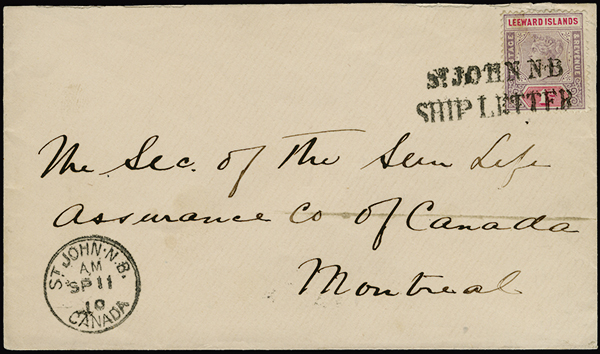 LEEWARD ISLANDS
POSTAGE
& REVENUE
ST JOHN N B
SHIP LETTER
The Sec. of the Sun Life
Assurance Co of Canada
Montreal
ST JOHN·N.B.
AM
SP 11
CANADA